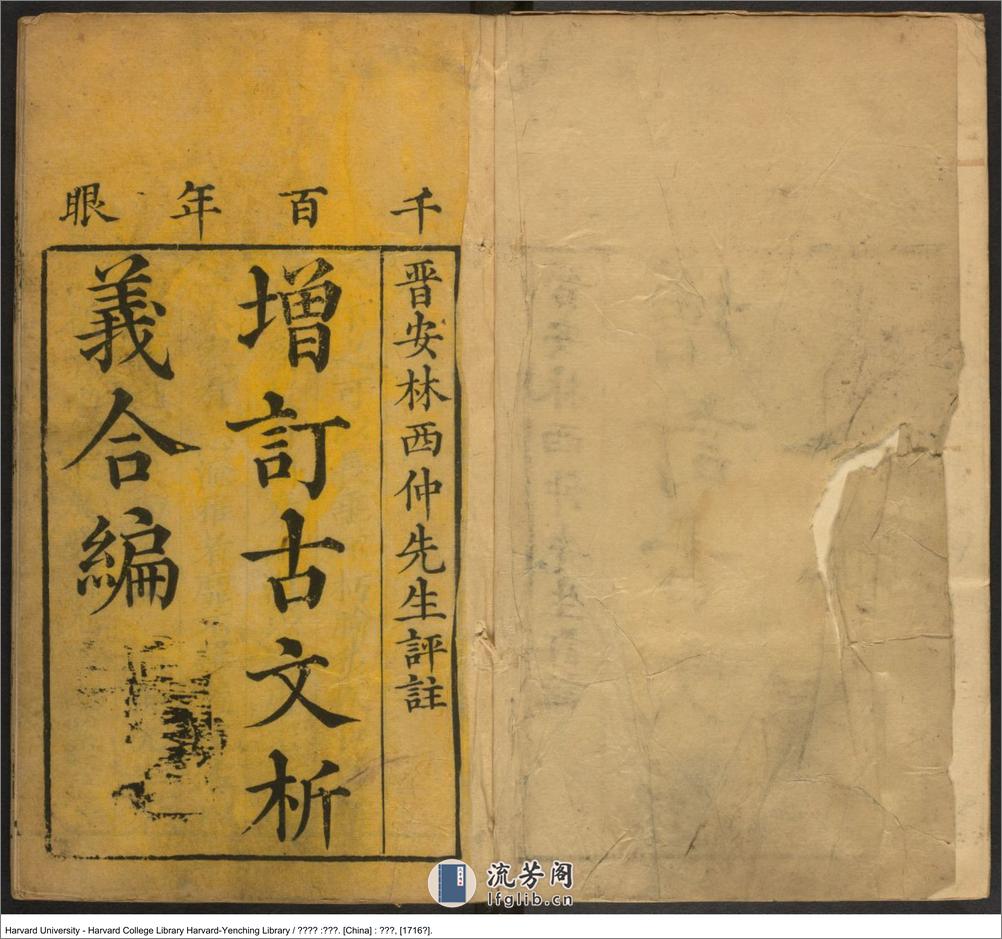 千百年眼
晋安林西仲先生評註
増訂古文析
義合編
流芳阁
lfglib.cn
Harvard University - Harvard College Library Harvard-Yenching Library / ???? :???. [China] : ???, [1716?].